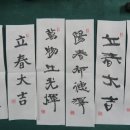 立春大吉
陽春布德澤
萬物生光輝
立春大吉